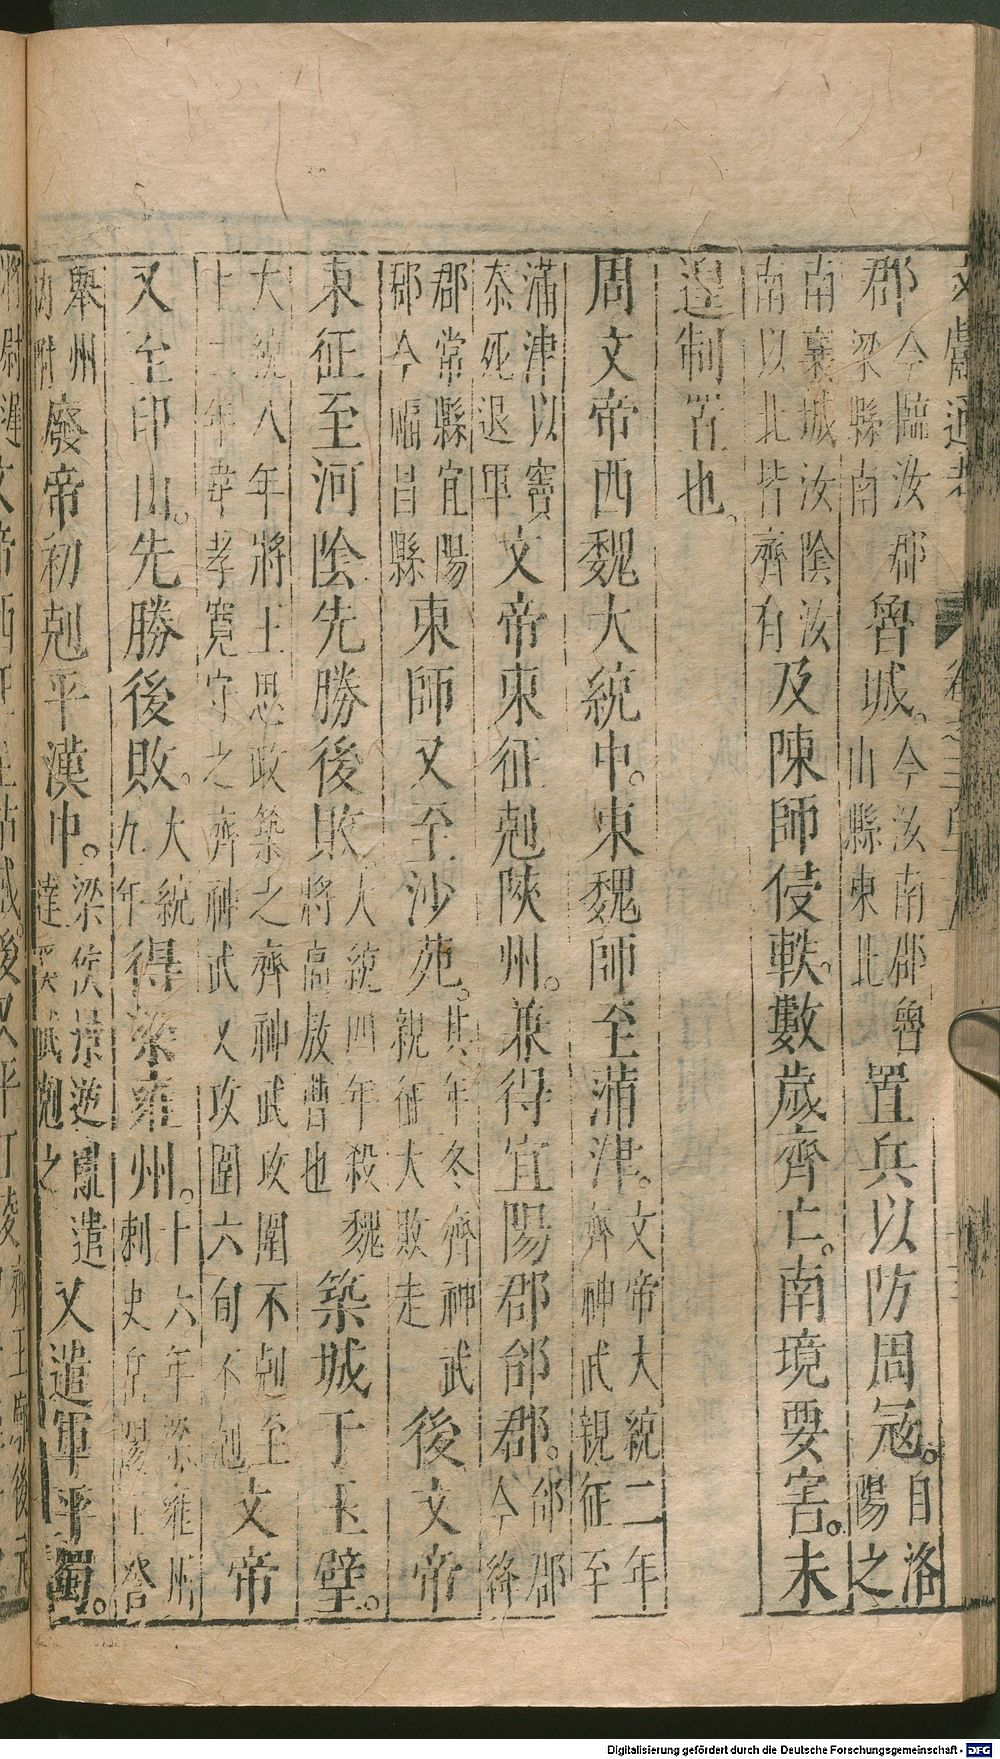 郡今臨汝郡梁縣南魯城。今汝南郡魯山縣東北置兵以防周冦。自洛陽之
南襄城汝陰汝南以北皆齊有及陳師侵軼。數歲齊亡。南境要害。未
遑制置也。
周文帝西魏大統中。東魏師至蒲津。文帝大統二年齊神武親征至
蒲津以竇泰死退軍文帝東征剋陝州。兼得宜陽郡郃郡。郃郡今絳
郡常縣宜陽郡今福昌縣東師又至沙苑。其年冬齊神武親征大敗走後文帝
東征至河陰先勝後敗。大統四年殺魏將高敖曹也築城于玉壁。
大統八年將王思政築之齊神武攻圍不剋至十二年韋孝寬守之齊神武又攻圍六旬不剋文帝
又至印山。先勝後敗。大統九年得梁雍州。十六年梁雍州刺史岳陽王詧
舉州內附廢帝初剋平漢中。梁侯景逆亂遣達奚武剋之又遣軍平蜀。
Digitalisierung gefördert durch die Deutsche Forschungsgemeinschaft - DFG